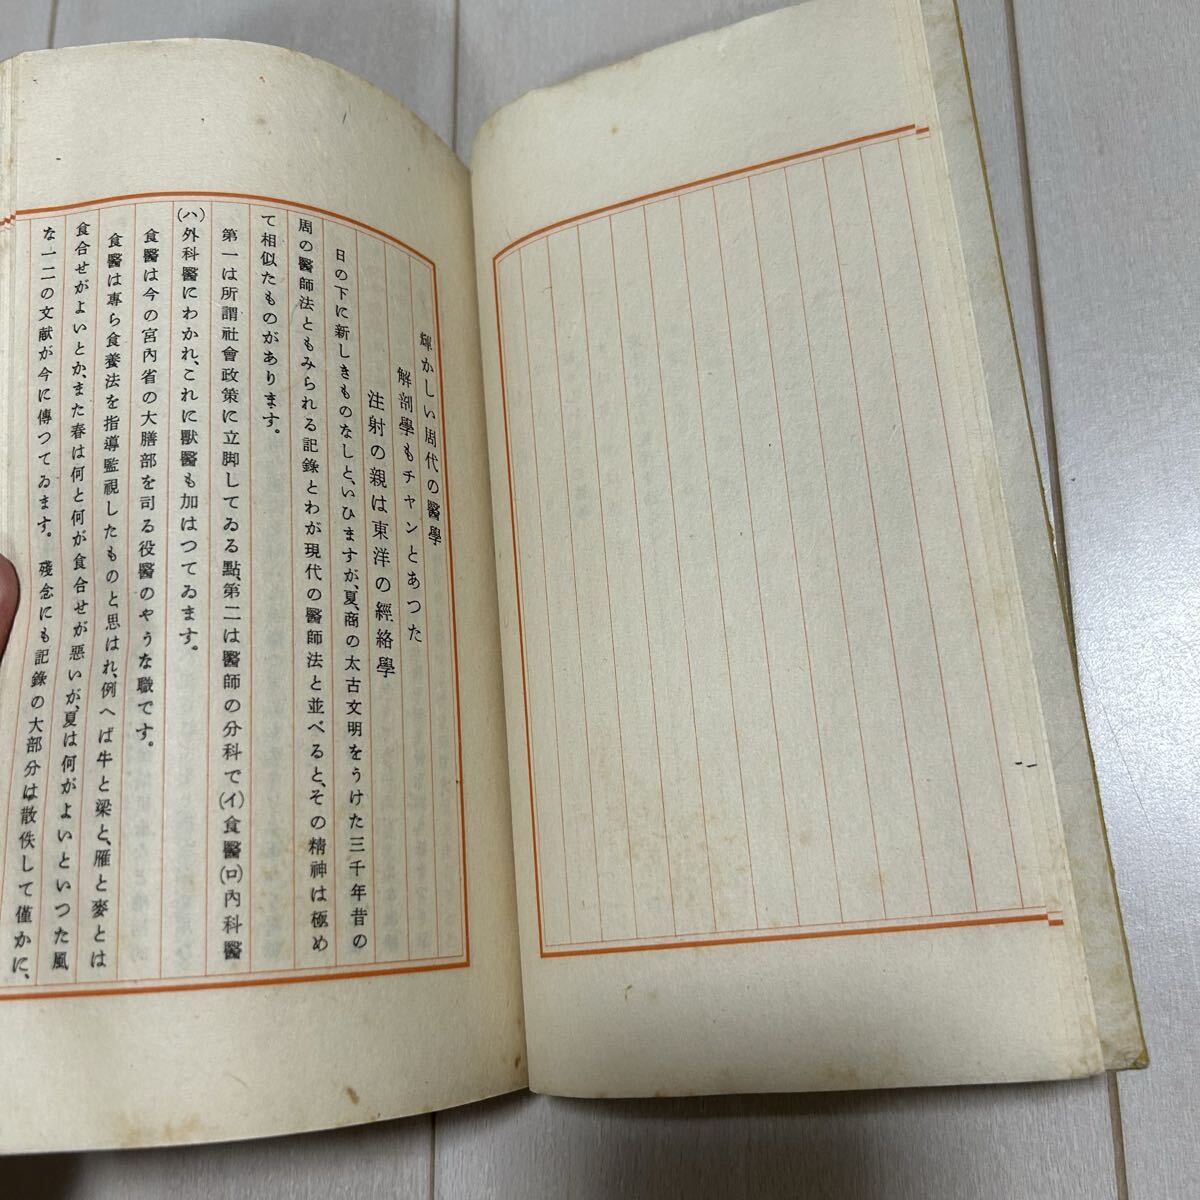 輝かしい周代の醫學
解剖學もチャンとあつた
注射の親は東洋の經絡學
日の下に新しきものなしと、いひますが、夏、商の太古文明をうけた三千年昔の
周の醫師法ともみられる記錄とわが現代の醫師法と並べると、その精神は極め
て相似たものがあります。
第一は所謂社會政策に立脚してゐる點、第二は醫師の分科で(イ)食醫(ロ)內科醫
(ハ)外科醫にわかれ、これに獸醫も加はつてゐます。
食醫は今の宮內省の大膳部を司る役醫のやうな職です。
食醫は專ら食養法を指導監視したものと思はれ、例へば牛と粱と、雁と麥とは
食合せがよいとか、また春は何と何が食合せが惡いが、夏は何がよいといつた風
な一二の文献が今に傳つてゐます。殘念にも記錄の大部分は散佚して僅かに、